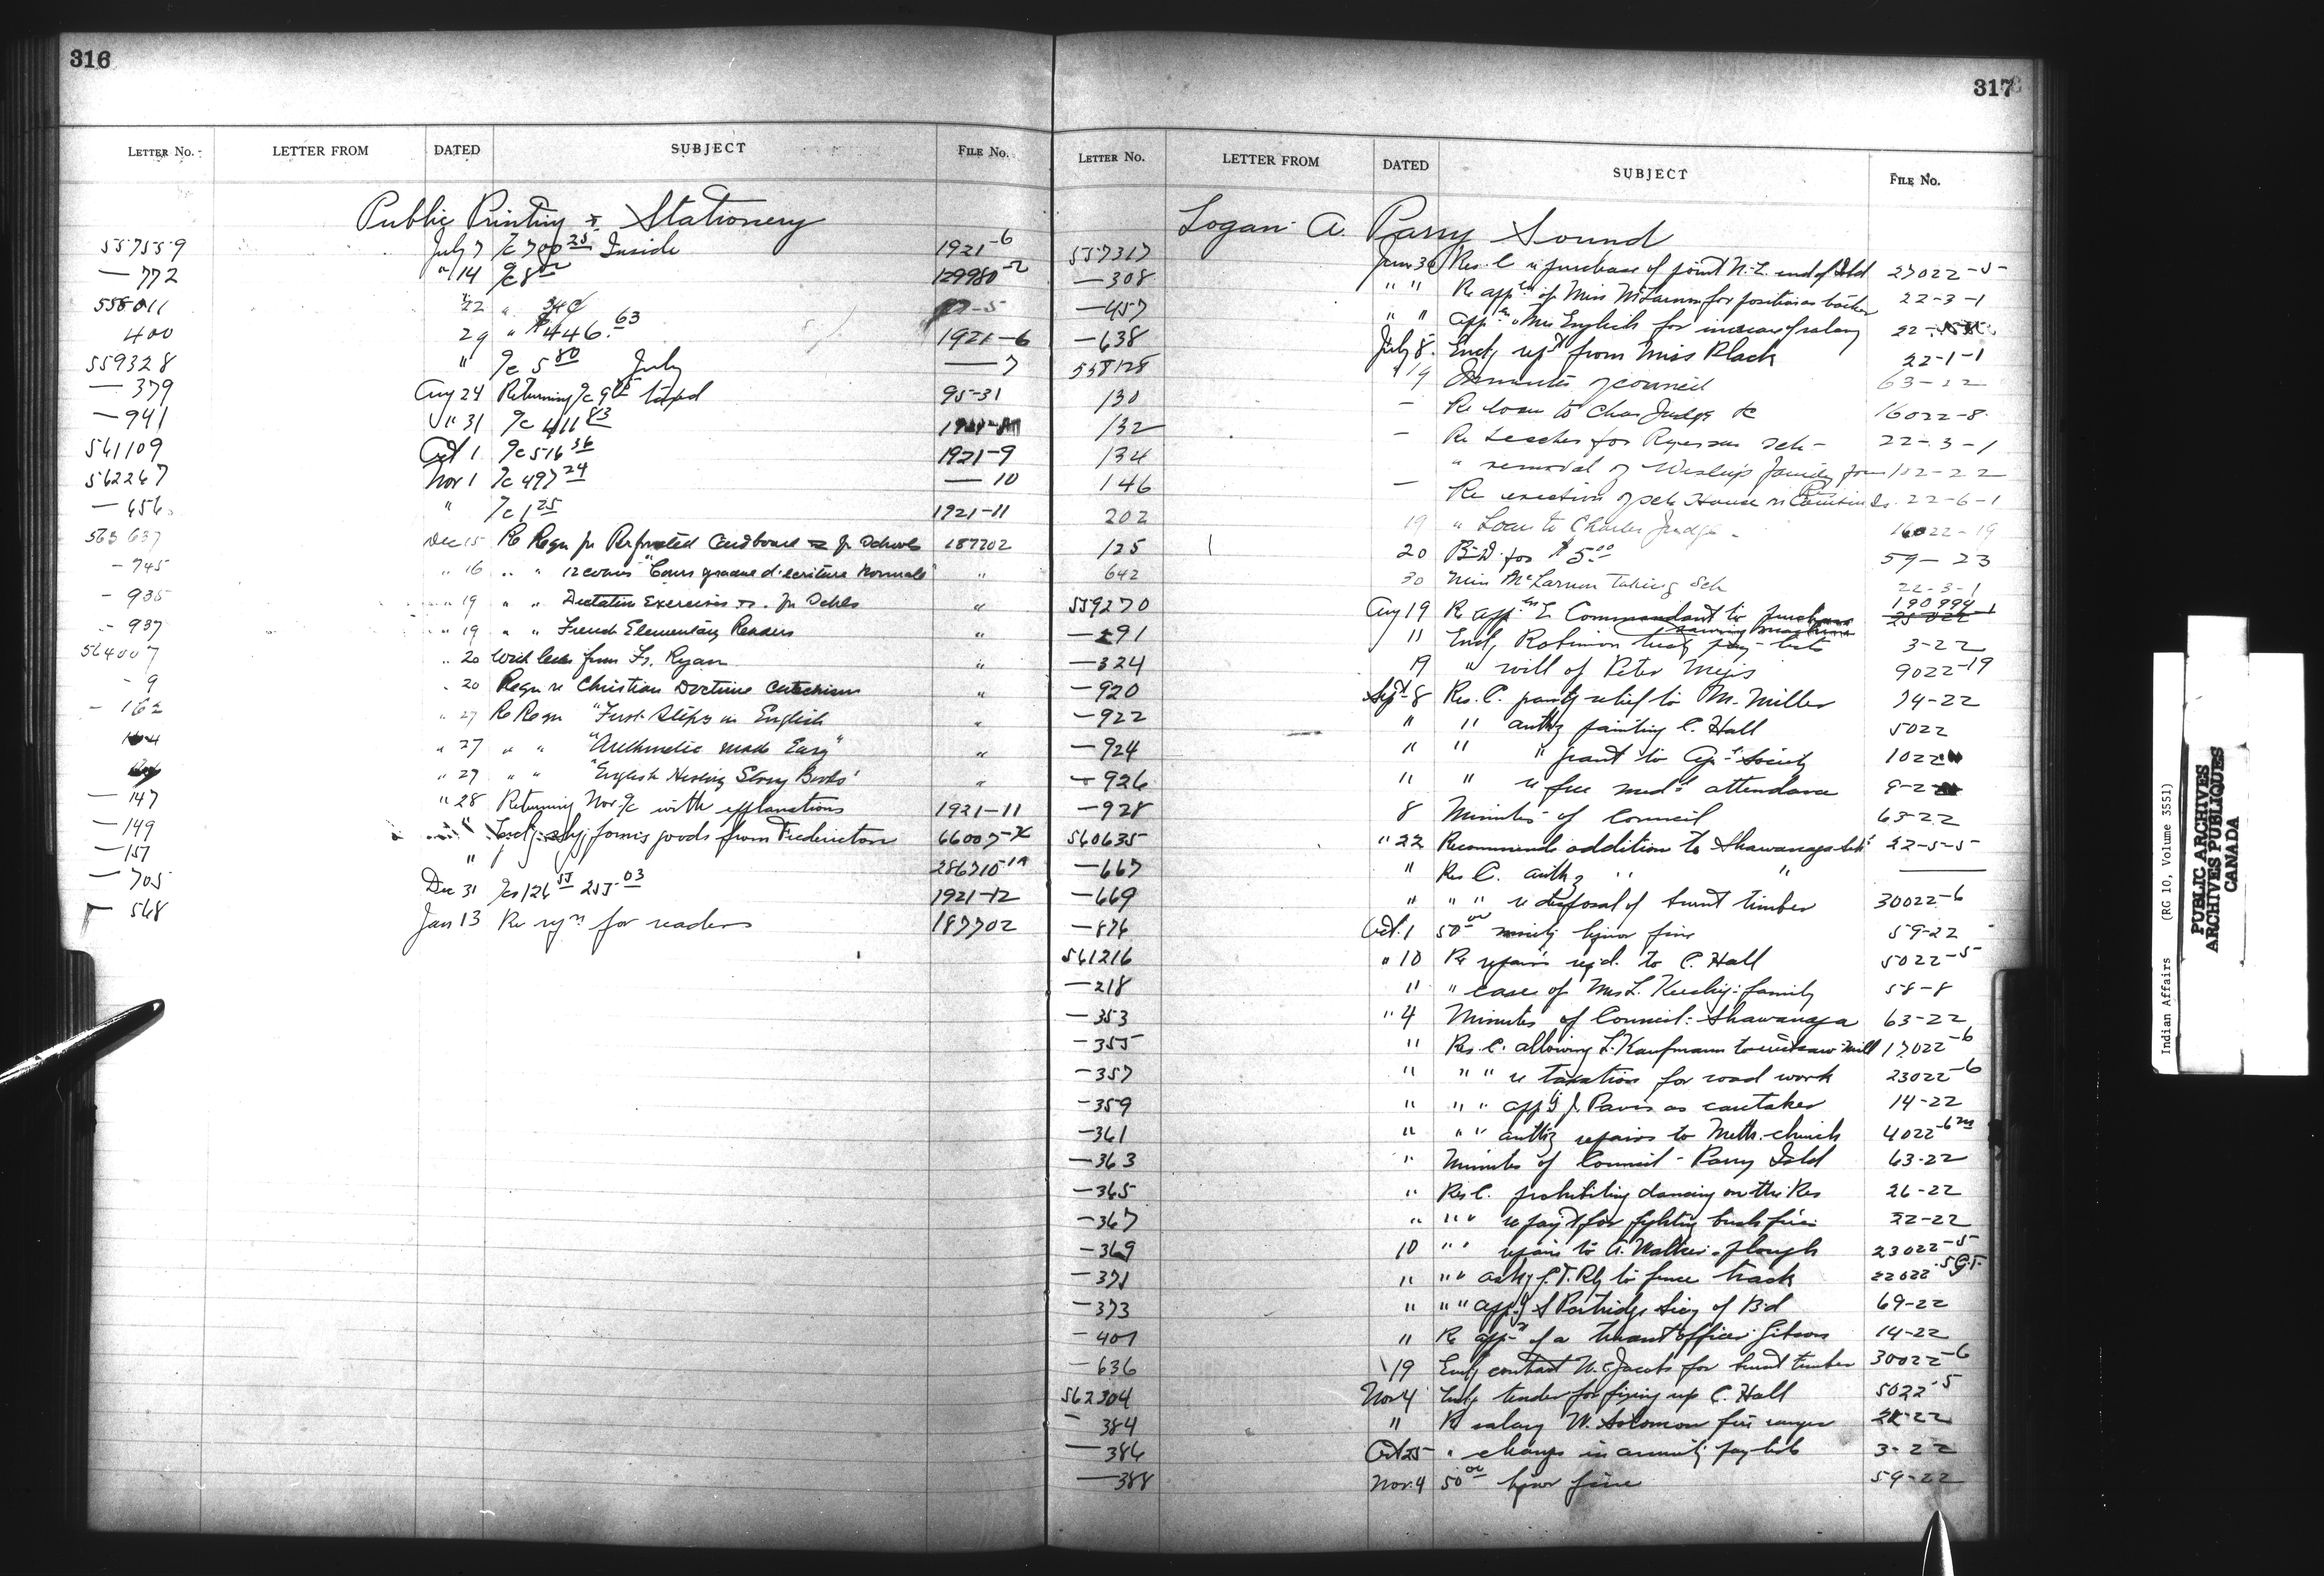 316
LETTER NO. LETTER FROM DATED SUBJECT FILE No.
Public Printing & Stationery
557559 July 7 700 25 Inside 1921-6
— 772 " 14 8 00 129980-2
558011 22 " 34¢
400 29 " $446.63 1921-6
559328 " 5 80 July — 7
— 379 Aug 24 Returning 95-31
— 941 " 31 411 83
561109 Oct 1 516 36 1921-9
562267 Nov 1 497 24 — 10
— 656 " 1 25 1921-11
563637 Dec 15 Re Reqn for Perforated Cardboard for Schools 187202
- 745 " 16 " " "Cours gradue d'ecriture Normale" "
- 935 " 19 " " Dictation Exercises for Schls "
- 937 " 19 " " French Elementary Readers "
564007 " 20 With letter from Fr. Ryan "
- 9 " 20 Reqn re Christian Doctrine Catechism "
- 162 " 27 Re Reqn "First Steps in English "
" 27 " " "Arithmetic made Easy" "
" 27 " " "English Story Books" "
— 147 " 28 Returning Nov with explanations 1921-11
— 149 " forms goods from Fredericton 66007
— 151 " 286710
— 705 Dec 31 126 55 255 03 1921-12
— 568 Jan 13 Re reqn for readers 187702
317
LETTER NO. LETTER FROM DATED SUBJECT FILE No.
Logan A. Parry Sound
557317 June 30 Res. C re purchase of point N.E. end of Isld 27022-5
— 308 " " Re appn of Miss McLarnon for position as teacher 22-3-1
— 457 " " English for increase of salary
— 638 July 8 Encl rept from Miss Black 22-1-1
558128 " 19 Minutes of council 63-22
130 — Re loan to Chas Judge 16022-8
132 — Re teacher for Ryerson sch — 22-3-1
134 " removal of family from 182-22
146 — Re erection of sch House 22-6-1
202 19 " Loan to Charles Judge - 16022-19
125 20 for $5.00 59-23
642 30 Miss McLarnon taking Sch 22-3-1
559270 Aug 19 Re appn Commandant to purchase 190994-1
—291 11 Encl Robinson pay-lists 3-22
—324 19 " will of Peter Megis 9022-19
—920 Sept 8 Res. C. grantg relief to M. Miller 74-22
—922 " " authg painting C. Hall 5022
—924 " " " grant to Agr Society 1022
—926 " " re free medl attendance
—928 8 Minutes of Council 63-22
560635 " 22 Recommends addition to Shawanaga 22-5-5
—667 " Res C. authg " " ———
—669 " " " re disposal of burnt timber 30022-6
—876 Oct. 1 50 00 liquor fine 59-22
561216 " 10 Re repairs reqd. to C. Hall 5022-5
—218 " " case of Mrs L. family 58-8
—353 " 4 Minutes of Council: Shawanaga 63-22
—355 " Res. C. allowing L. Kaufmann to saw mill 17022-6
—357 " " " re taxation for road work 23022-6
—359 " " " appg J. Pavis as caretaker 14-22
—361 " " " authg repairs to Meth. church 4022-6
—363 " Minutes of Council - Parry Isld 63-22
—365 " Res C. prohibiting dancing on the Res 26-22
—367 " " " re payt for fighting bush fires 22-22
—369 10 " " repairs to plough 23022-5
—371 " " " askg G.T. Rly to fence track 22022-5 G.T.
—373 " " " appg S Partridge Secy of Bd 69-22
—407 " Re appn of a truant officer Gibson 14-22
—636 19 Encl contract W. Jacobs for burnt timber 30022-6
562304 Nov 4 Encl tender for fixing up C. Hall 5022-5
—384 " Re salary W. Solomon fire ranger
—386 Oct 25 " change in annuity pay lists 3-22
—388 Nov. 4 50 00 liquor fine 59-22
Indian Affairs (RG 10, Volume 3551)
PUBLIC ARCHIVES
ARCHIVES PUBLIQUES
CANADA